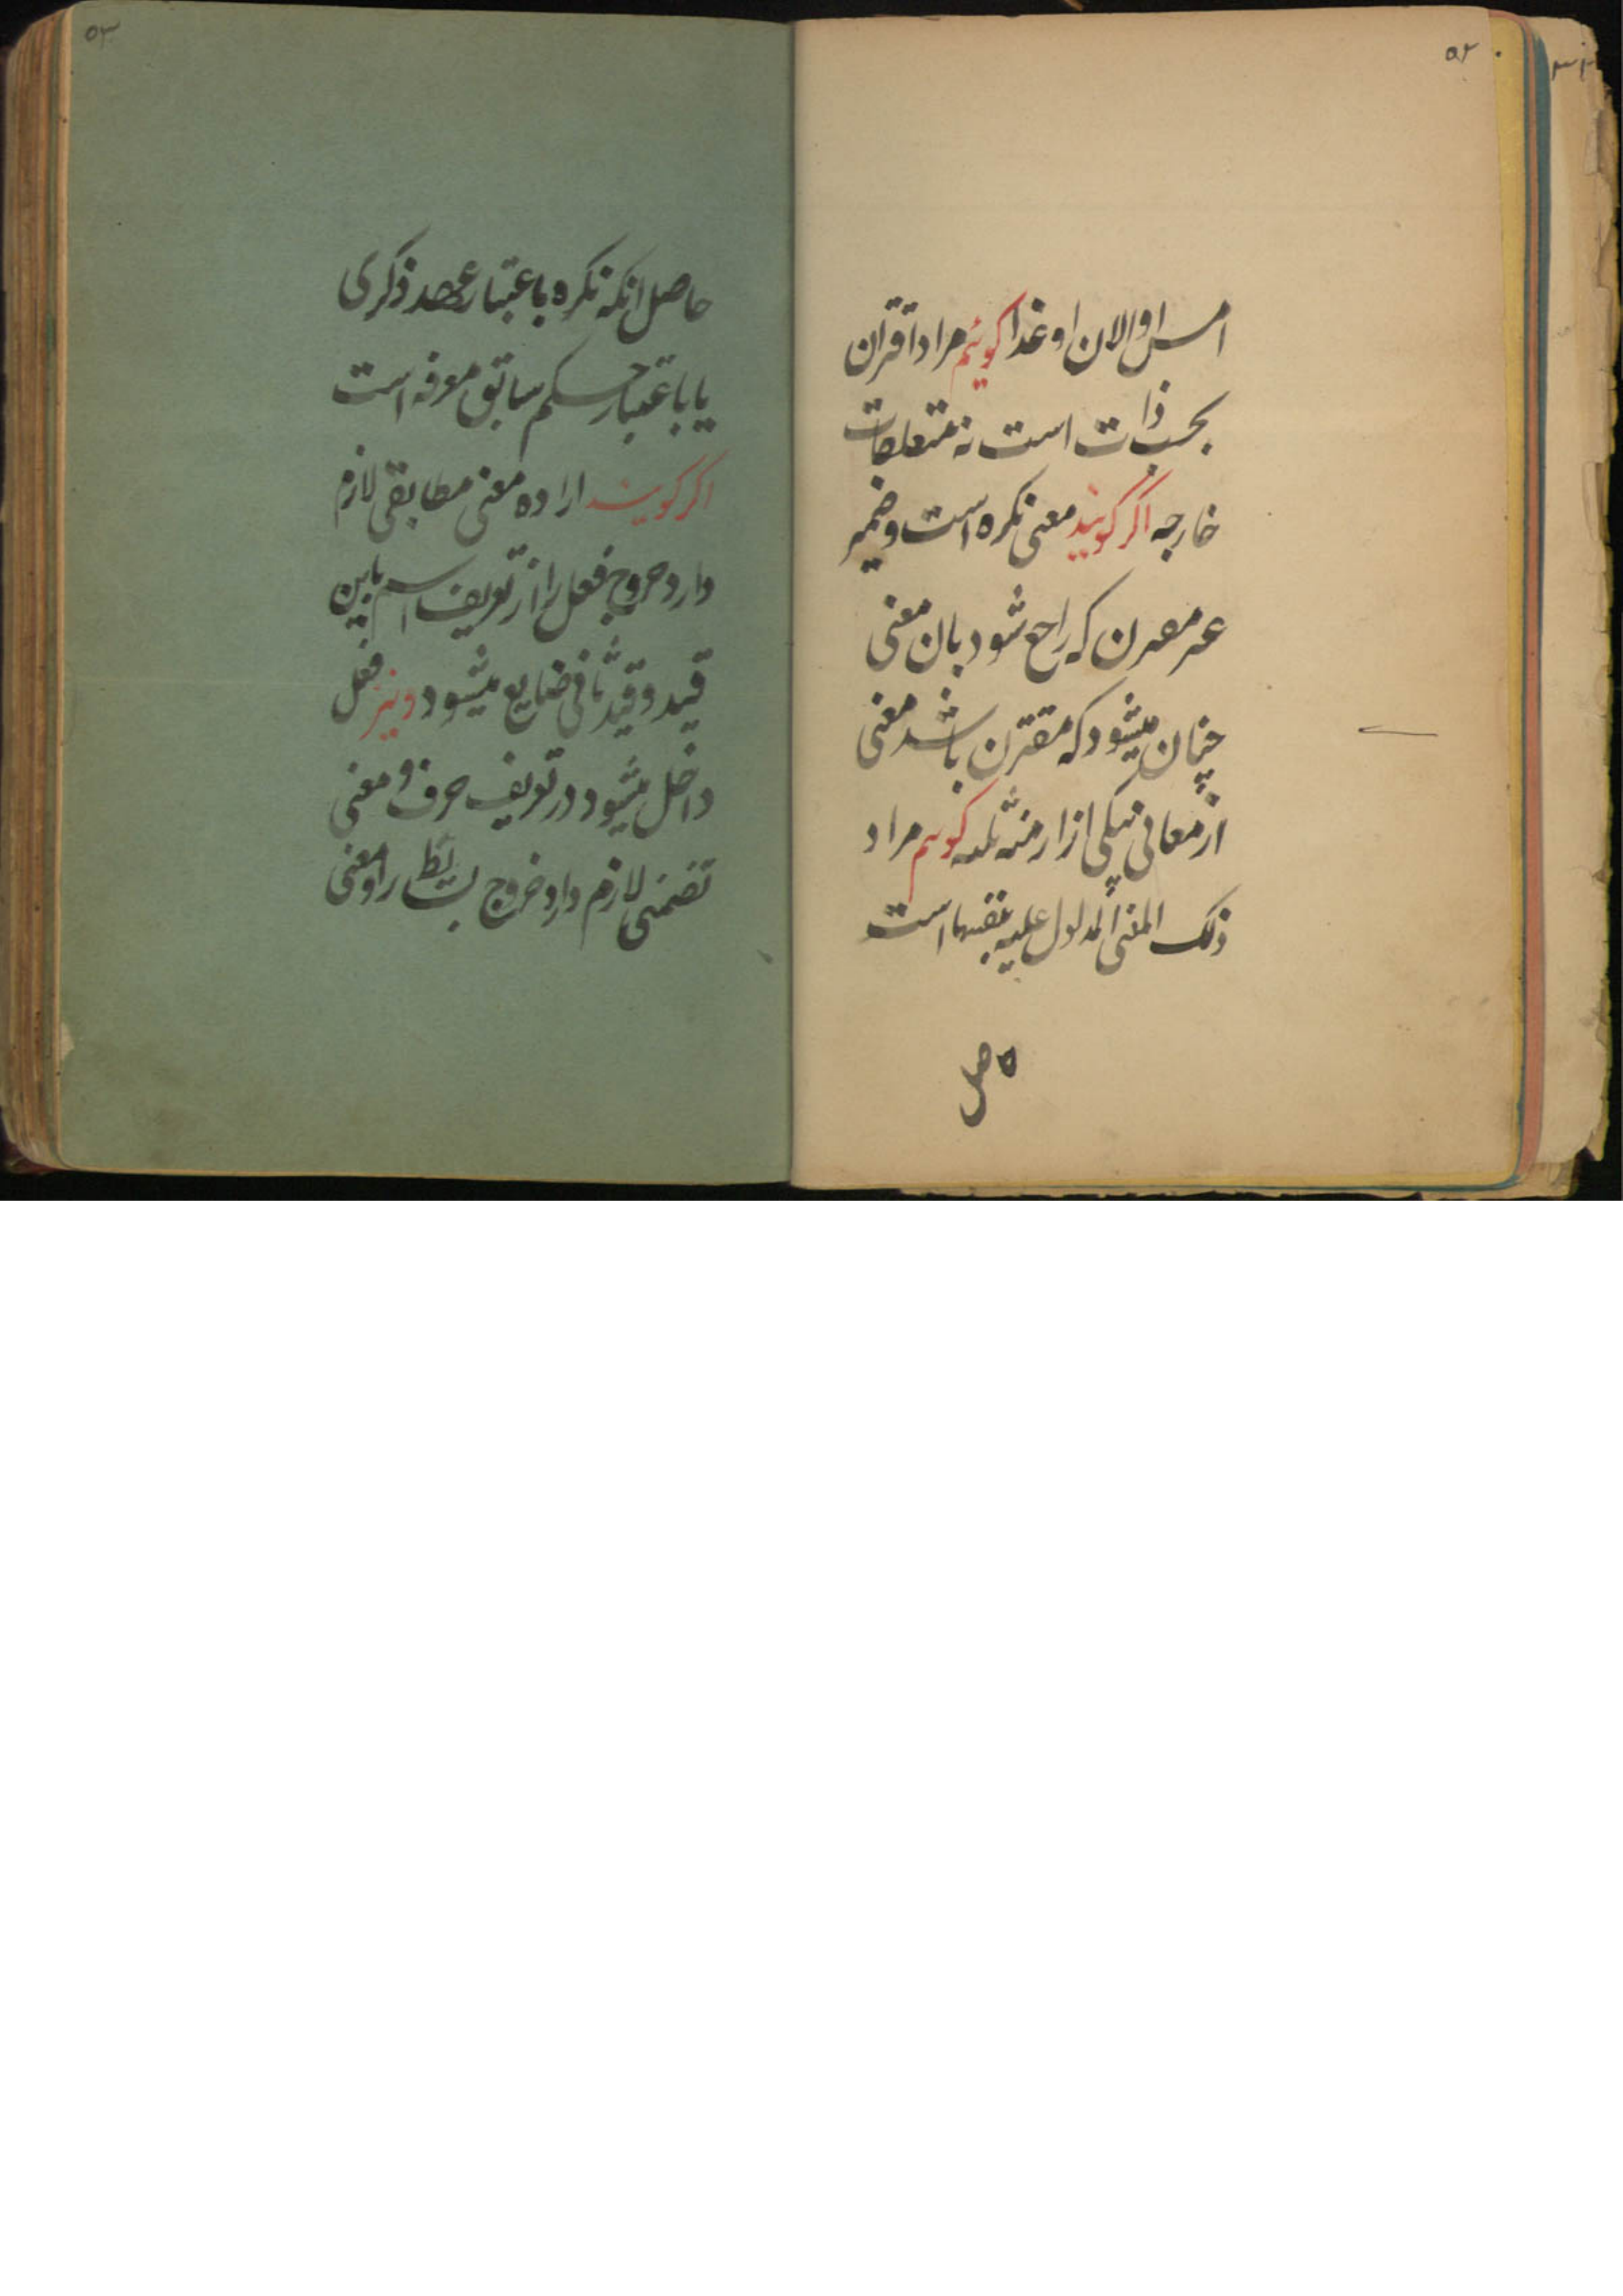 ۵۲
امس او الان او غدا کوئیم مراد اقتران
بحسب ذات است نه متعلقات
خارجه اکر کویند معنی نکره است و ضمیر
که راجع شود بان معنی
چنان میشود که مقترن باشد معنی
از معانی بیکی از ازمنه ثلثه کوئیم مراد
ذلک المعنی المدلول علیه بنفسها است
حاصل
۵۳
حاصل انکه نکره باعتبار عهد ذکری
یا باعتبار حکم سابق معرفه است
اکر کویند اراده معنی مطابقی لازم
دارد خروج فعل را از تعریف اسم باین
قید و قید ثانی ضایع میشود و نیز فعل
داخل میشود در تعریف حرف و معنی
تضمنی لازم دارد خروج بسائط را و معنی